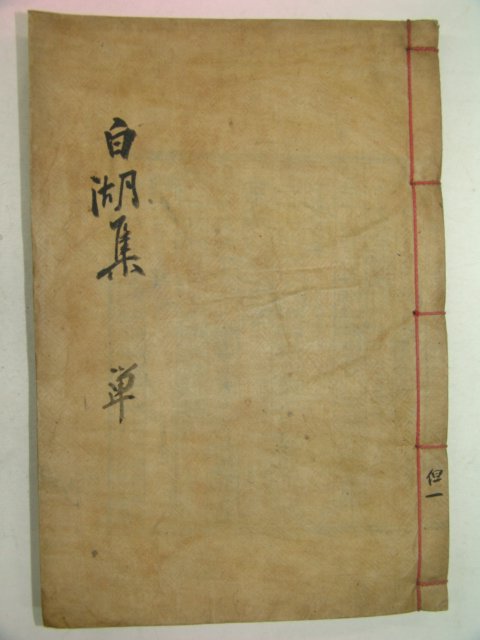 白湖集 単
但一